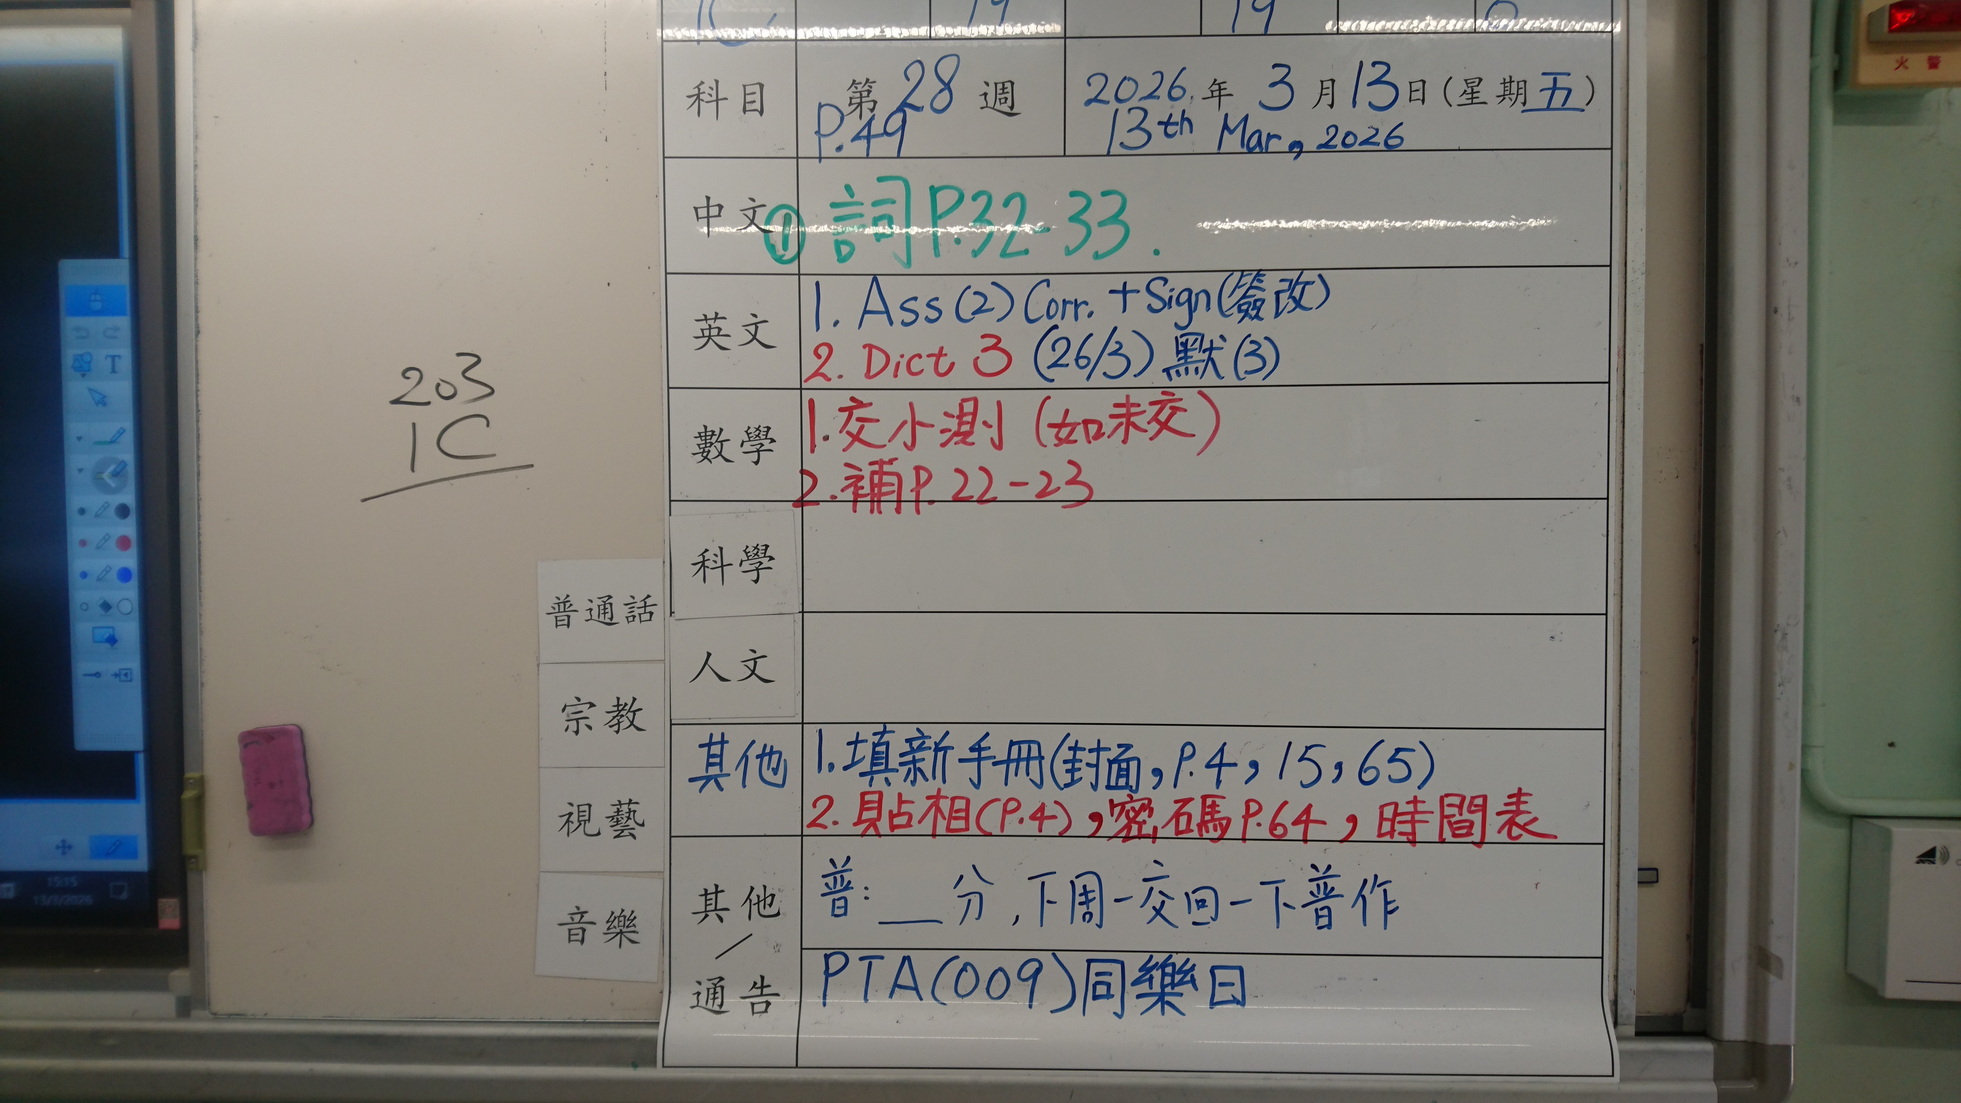 科目 第28週 2026年3月13日(星期五)
P.49 13th Mar, 2026
中文 ① 詞P.32-33.
英文 1. Ass(2) Corr. +Sign(簽改)
2. Dict 3 (26/3) 默(3)
數學 1.交小測 (如未交)
2.補P.22-23
科學
人文
其他 1.填新手冊(封面,P.4,15,65)
2.貼相(P.4),密碼P.64,時間表
其他/通告 普:__分,下周一交回一下普作
PTA(009)同樂日
203
1C
普通話
宗教
視藝
音樂
火警
T
15:15
13/3/2026